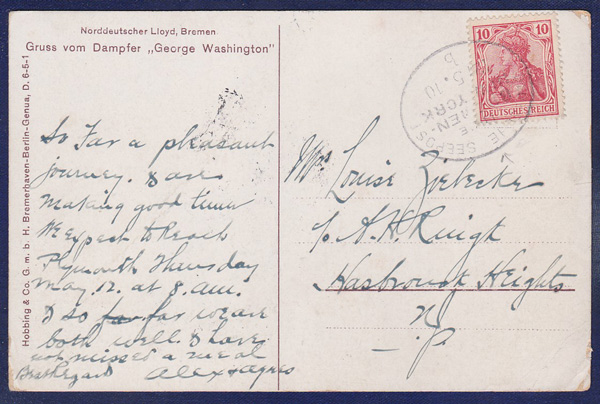 Norddeutscher Lloyd, Bremen
Gruss vom Dampfer „George Washington"
Hobbing & Co. G. m. b. H. Bremerhaven-Berlin-Genua, D. 6-5-1
So Far a pleasant
journey. & are
making good time
We Expect to Reach
Plymouth Thursday
May. 12. at 8. am.
& so far far we are
both well. I have
not missed a meal
Best Regard Alex & Agnes
10 10
DEUTSCHES REICH
5. 10
YORK
SEEPOS
Mrs Louise Ziebecke
c/o A. H. Ruigh
Hasbrouck Heights
N.J.